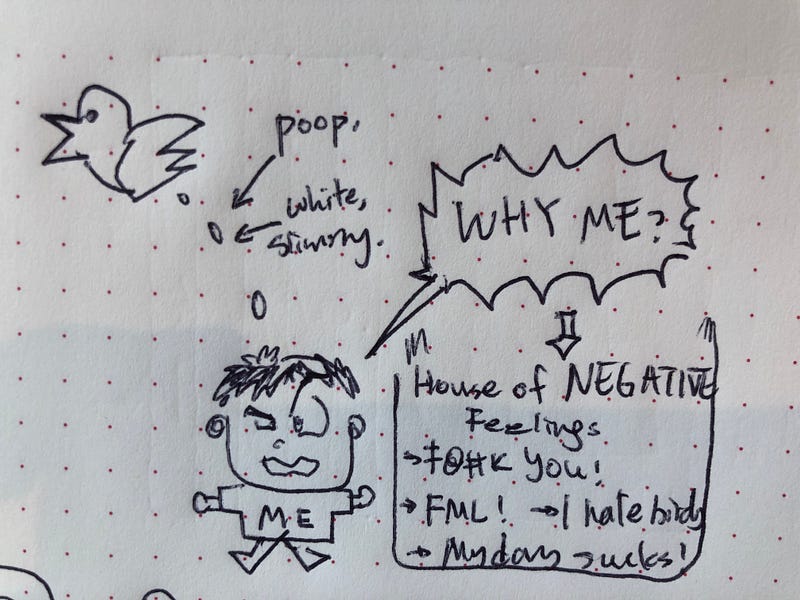 poop.
white,
slimmy.
WHY ME?
House of NEGATIVE
Feelings
→ F@#K YOU!
→ FML! → I hate birds
→ My day sucks!
ME